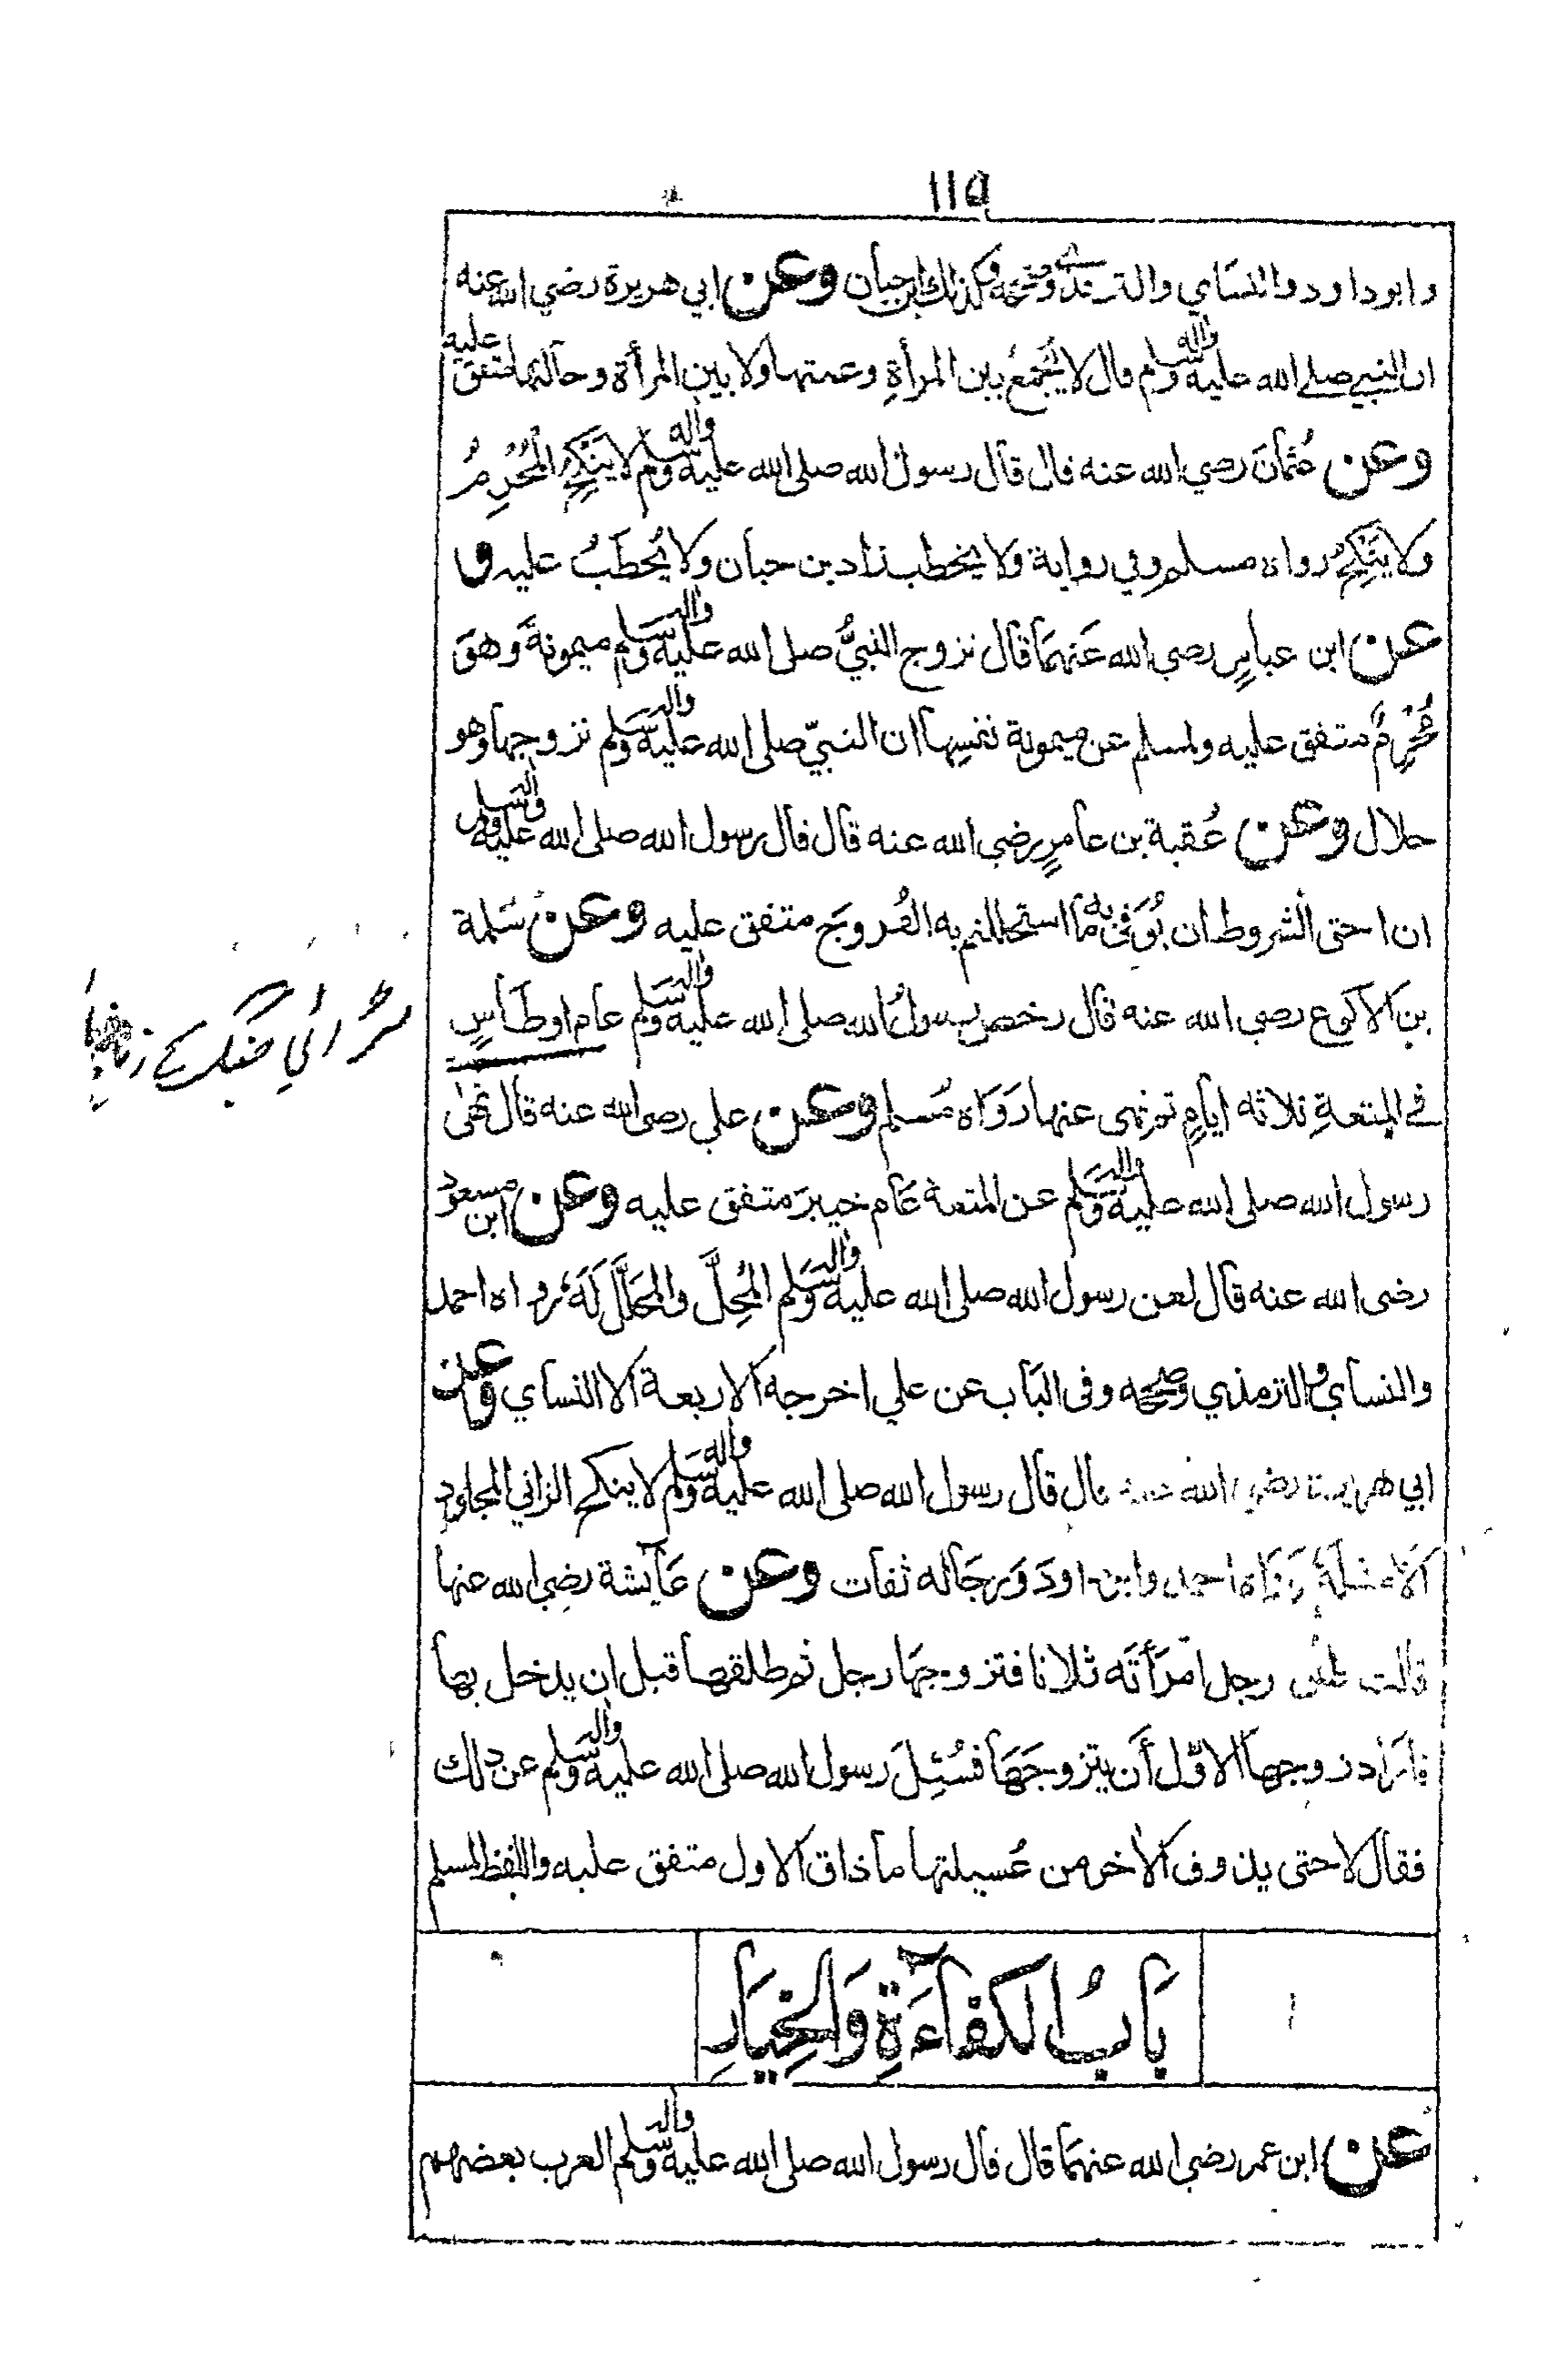 ١١٥
وابوداود والنسَاي والترمذي وصححه وكذلك ابن حبان وعن ابي هريرة رضي الله عنه
ان النبي صلى الله عليه واله وسلم قال لا يُجْمَعُ بين المرأةِ وعمتها ولا بين المرأة وخالتها متفق عليه
وعن عُثمانَ رضي الله عنه قال قال رسول الله صلى الله عليه واله وسلم لا يَنْكِحُ المُحْرِمُ
ولا يُنْكِحُ رواه مسلم وفي رواية ولا يخطب زاد بن حبان ولا يُخطَبُ عليه و
عن ابن عباسٍ رضي الله عَنهمَا قال تزوج النبيُّ صلى الله عليه واله وسَلم ميمونةَ وهوَ
مُحْرِمٌ متفق عليه ولمسلم عن ميمونة نفسِها ان النبيّ صلى الله عليه واله وسلم تزوجها وهو
حلال وعن عُقبة بن عامرٍ رضي الله عنه قال قال رسول الله صلى الله عليه واله وسلم
ان احق الشروط ان يُوَفى به ما استحللتم به الفُروجَ متفق عليه وعن سَلمة
بن الاكوع رضي الله عنه قال رخص رسولُ الله صلى الله عليه واله وسلم عام اوطاسٍ
في المتعةِ ثلاثه ايامٍ ثم نهى عنها رَوَاه مُسلم وعن علي رضى الله عنه قال نهىٰ
رسول الله صلى الله عليه واله وسلم عن المتعة عَام خيبرَ متفق عليه وعن ابن مسعود
رضى الله عنه قال لعن رسول الله صلى الله عليه واله وسلم المُحِلَّ والمُحَلَّلَ لَهُ رواه احمد
والنساي والترمذي وصححه وفى البَاب عن علي اخرجه الاربعة الا النساي وعن
ابي هريرة رضي الله عنه قال قال رسول الله صلى الله عليه واله وسلم لا ينكح الزاني المجلود
الا مثلهُ رَوَاه احمد وابوداودَ وَرجَاله ثقات وعن عَايشة رضِي الله عنها
قالت طلق رجل امرَأتَه ثلاثا فتزوجهَا رجل ثم طلقها قبل ان يدخل بها
فارَاد زوجها الاوّل أَن يتزوجَهَا فسُئِلَ رسول الله صلى الله عليه واله وسلم عن ذلك
فقال لا حتى يذوق الاٰخر من عُسيلتها ما ذاق الاول متفق عليه واللفظ لمسلم
بَابُ الكفَاءَةِ وَالخِيَارِ
عن ابن عمر رضي الله عنهمَا قال قال رسول الله صلى الله عليه واله وسلم العرب بعضهم